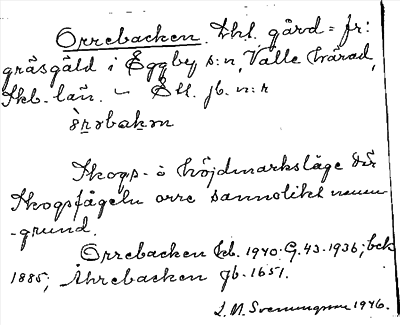 Orrebacken. Lht. gärd = fr:
gräsgäld i Eggby s:n, Valle härad,
Skb. län. — Ett. jb. n:r
Skogs- o höjdmarksläge där
skogsfågeln orre sannolikt namn
-grund.
Orrebacken kb. 1940. G. 43. 1936; bek
1885; Åhrebacken Jb. 1651.
1946.